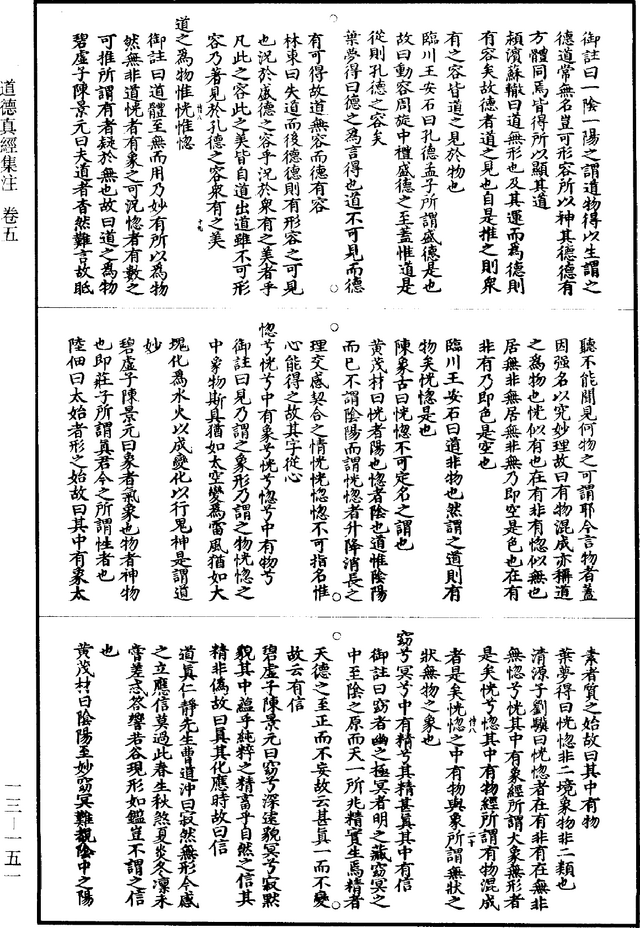 御註曰一陰一陽之謂道物得以生謂之
德道常無名豈可形容所以神其德德有
方體同焉皆得所以顯其道
潁濱蘇轍曰道無形也及其運而為德則
有容矣故德者道之見也自是推之則衆
有之容皆道之見於物也
臨川王安石曰孔德孟子所謂盛德是也
故曰動容周旋中禮盛德之至蓋惟道是
從則孔德之容矣
葉夢得曰德之為言得也道不可見而德
有可得故道無容而德有容
林東曰失道而後德德則有形容之可見
也況於盛德之容乎況於衆有之美者乎
凡此之容此之美皆自道出道雖不可形
容乃著見於孔德之容衆有之美
道之為物惟恍惟惚
御註曰道體至無而用乃妙有所以為物
然無非道恍者有象之可況惚者有數之
可推所謂有者疑於無也故曰道之為物
碧虛子陳景元曰夫道者杳然難言故眂
聽不能聞見何物之可謂耶今言物者蓋
因强名以究妙理故曰有物混成亦稱道
之為物也恍似有也在有非有惚似無也
居無非無居無非無乃即空是色也在有
非有乃即色是空也
臨川王安石曰道非物也然謂之道則有
物矣恍惚是也
陳象古曰恍惚不可定名之謂也
黃茂材曰恍者陽也惚者陰也道惟陰陽
而已不謂陰陽而謂恍惚者升降消長之
理交感契合之情恍恍惚惚不可指名惟
心能得之故其字從心
惚兮恍兮中有象兮恍兮惚兮中有物兮
御註曰見乃謂之象形乃謂之物恍惚之
中象物斯具猶如太空變為雷風猶如大
塊化為水火以成變化以行鬼神是謂道
妙
碧虛子陳景元曰象者氣象也物者神物
也即莊子所謂真君今之所謂性者也
陸佃曰太始者形之始故曰其中有象太
素者質之始故曰其中有物
葉夢得曰恍惚非二境象物非二類也
清源子劉驥曰恍惚者在有非有在無非
無惚兮恍其中有象經所謂大象無形者
是矣恍兮惚其中有物經所謂有物混成
者是矣恍惚之中有物與象所謂無狀之
狀無物之象也
窈兮冥兮中有精兮其精甚真其中有信
御註曰窈者幽之極冥者明之藏窈冥之
中至陰之原而天一所兆精實生焉精者
天德之至正而不妄故云甚真一而不變
故云有信
碧虛子陳景元曰窈兮深遠貌冥兮寂默
貌其中蘊乎純粹之精言乎自然之信其
精非偽故曰真其化應時故曰信
道真仁靜先生曹道沖曰寂然無形今感
之立應信莫過此春生秋煞夏炎冬凜未
嘗差忒答響若谷現形如鑑豈不謂之信
也
黃茂材曰陰陽至妙窈冥難覩陰中之陽
道德真經集注 卷五
一三—一五一